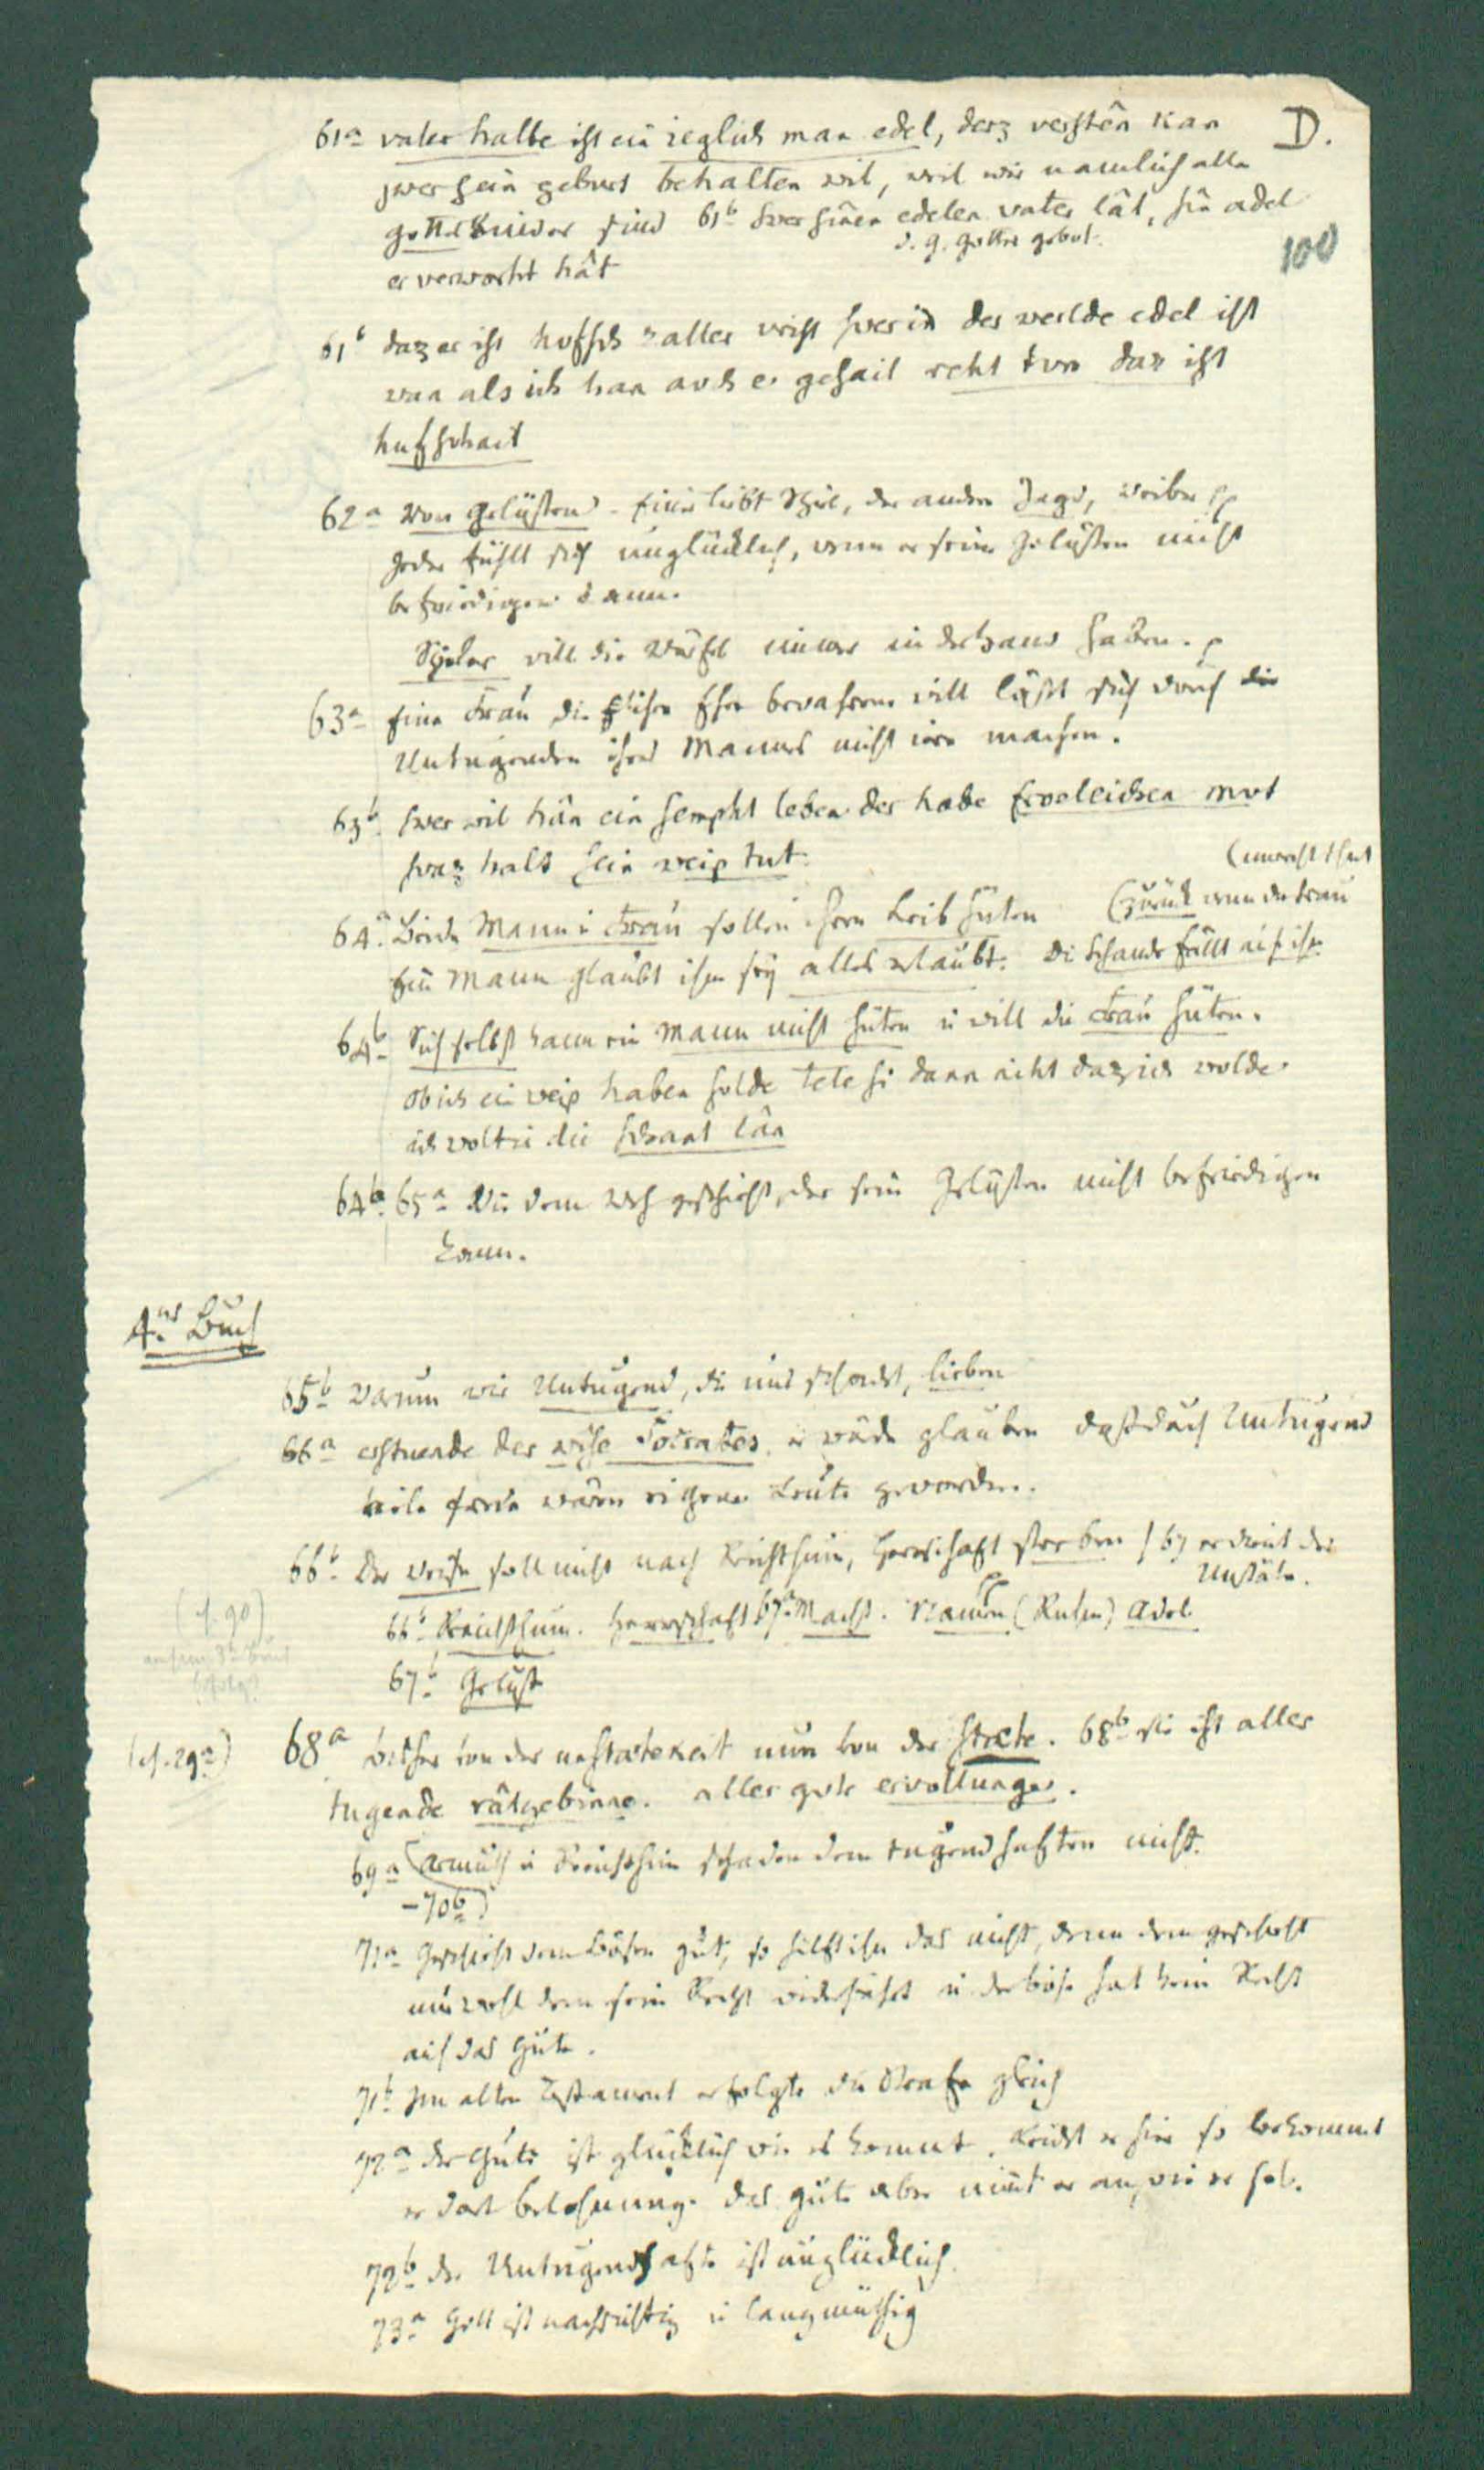 D.
100
61a vater halbe ist ein ieglich man edel, derz verstên kan
swer sein geburt behalten wil, weil wir naemlich alle
gottes kinder sind 61b swer sinen edelen vater lât, sin adel
d. g. gottes gebot.
er verworht hât
61b daz er ist hufsch zaller vrist swer in der werlde edel ist
wan als ich han auch e gesait reht tun daz ist
hufschait
62a Von Gelüsten – Einer liebt Spiel, der andere Jagd, Weiber pp
Jeder fühlt sich unglücklich, wenn er seine Gelüsten nicht
befriedigen kann.
Spieler will die Würfel immer in der Hand haben. p
63a Eine Frau die ihre Ehre bewahren will läßt sich durch die
Untugenden ihres Mannes nicht irre machen.
63b swer wil hân ein sempht leben der habe vroleichen mut
swaz halt sein weip tut.
(unrecht thut
64a Beide Mann u Frau sollen ihren Leib hüten (zurück wenn die Frau
Ein Mann glaubt ihm sey alles erlaubt. Die Schande fällt auf ihn
64b Sich selbst kann ein Mann nicht hüten u will die Frau hüten.
ob ich ein weip haben solde tete si dann niht daz ich wolde
ich wolt ir die schant lân
64b 65a Wie dem Weh geschieht, der sein Gelüsten nicht befriedigen
kann.
4tes Buch
65b Warum wir Untugend, die uns schadet, lieben
66a erstuende der wise Socrates er würde glauben daß durch Untugend
viele freie wären eigene Leute geworden.
66b Der Weise soll nicht nach Reichthum, Herrschaft streben / 67 er dient der
Unstäte.
66b Reichthum. Herrschaft 67a Macht. Namen (Ruhm) Adel
67b Gelüst
(cf. 29a) 68a bisher von der unstatekeit nun von der staete. 68b sie ist aller
tugende râtgebinne. aller gute ervollunge.
69a (Armuth u Reichthum schaden dem tugendhaften nicht.
–70b)
71a Geschieht dem Bösen gut, so hilft ihm das nicht, denn dem geschieht
nur wohl dem sein Recht widerfährt u der böse hat kein Recht
auf das Gute.
71b Im alten Testament erfolgte die Strafe gleich
72a der Gute ist glücklich wie es kommt. Leidet er hier so bekommt
er dort belohnung. das gute aber nimt er an, wie er soll.
72b der Untugendhafte ist unglücklich.
73a Gott ist nachsichtig u langmüthig